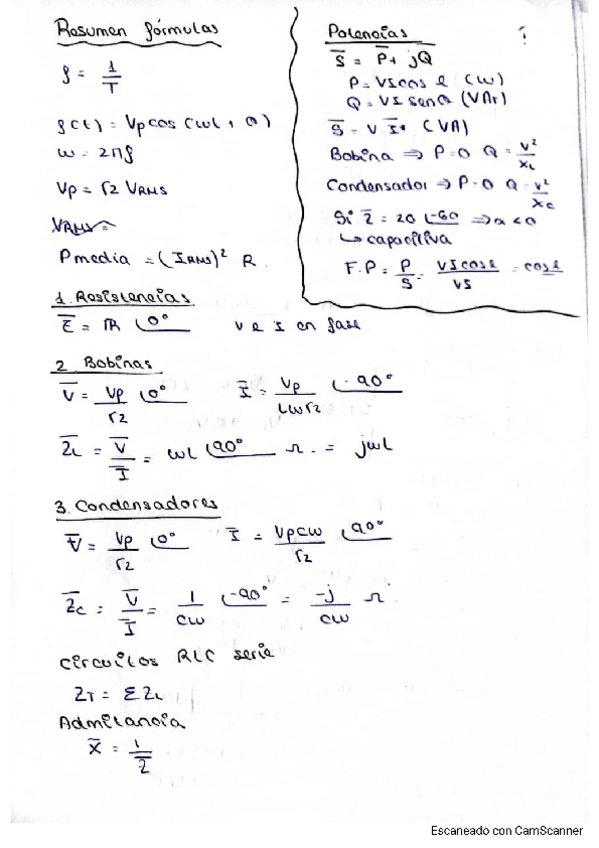 Resumen fórmulas
f = 1/T
f(t) = Vp cos (wt + θ)
ω = 2πf
Vp = √2 VRMS
VRMS=
Pmedia = (IRMS)² R.
Potencias
S̄ = P̄ + jQ̄
P = VI cos φ (W)
Q = VI sen φ (VAr)
S̄ = V. Ī* (VA)
Bobina ⇒ P=0 Q = V²/XL
Condensador ⇒ P=0 Q = V²/Xc
Si Z̄ = 20 ∠-60 ⇒ Q<0
↳ capacitiva
F.P = P/S = VI cos φ/VS = cos φ
1. Resistencias
Z̄ = R ∠0° V e I en fase
2. Bobinas
V̄ = Vp/√2 ∠0° Ī = Vp/Lω√2 ∠-90°
ZL = V̄/Ī = ωL ∠90° Ω. = jωL
3. Condensadores
V̄ = Vp/√2 ∠0° Ī = Vpcω/√2 ∠90°
Z̄c = V̄/Ī = 1/cω ∠-90° = -j/cω Ω
Circuitos RLC serie
ZT = ΣZi
Admitancia
Ȳ = 1/Z̄
Escaneado con CamScanner